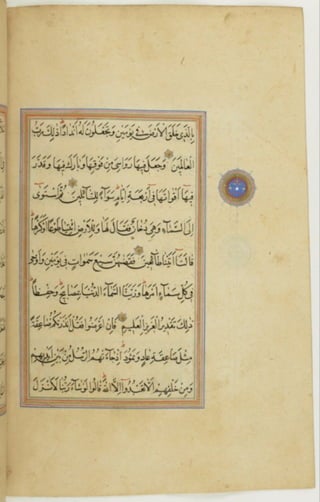 بِالَّذِي خَلَقَ الْأَرْضَ فِي يَوْمَيْنِ وَتَجْعَلُونَ لَهُ أَندَادًا ذَٰلِكَ رَبُّ
الْعَالَمِينَ وَجَعَلَ فِيهَا رَوَاسِيَ مِن فَوْقِهَا وَبَارَكَ فِيهَا وَقَدَّرَ
فِيهَا أَقْوَاتَهَا فِي أَرْبَعَةِ أَيَّامٍ سَوَاءً لِلسَّائِلِينَ ثُمَّ اسْتَوَىٰ
إِلَى السَّمَاءِ وَهِيَ دُخَانٌ فَقَالَ لَهَا وَلِلْأَرْضِ ائْتِيَا طَوْعًا أَوْ كَرْهًا
قَالَتَا أَتَيْنَا طَائِعِينَ فَقَضَاهُنَّ سَبْعَ سَمَوَاتٍ فِي يَوْمَيْنِ وَأَوْحَىٰ
فِي كُلِّ سَمَاءٍ أَمْرَهَا وَزَيَّنَّا السَّمَاءَ الدُّنْيَا بِمَصَابِيحَ وَحِفْظًا
ذَٰلِكَ تَقْدِيرُ الْعَزِيزِ الْعَلِيمِ فَإِنْ أَعْرَضُوا فَقُلْ أَنذَرْتُكُمْ صَاعِقَةً
مِثْلَ صَاعِقَةِ عَادٍ وَثَمُودَ إِذْ جَاءَتْهُمُ الرُّسُلُ مِن بَيْنِ أَيْدِيهِمْ
وَمِنْ خَلْفِهِمْ أَلَّا تَعْبُدُوا إِلَّا اللَّهَ قَالُوا لَوْ شَاءَ رَبُّنَا لَأَنزَلَ